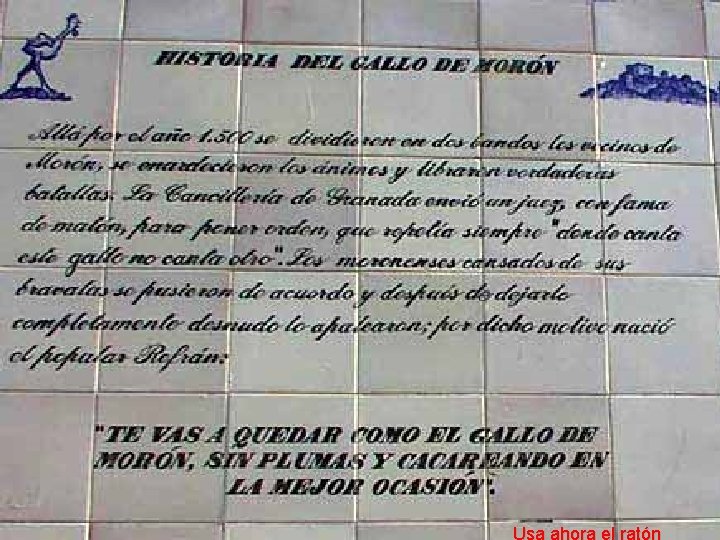 HISTORIA DEL GALLO DE MORÓN
Allá por el año 1.500 se dividieron en dos bandos los vecinos de
Morón, se enardecieron los ánimos y libraron verdaderas
batallas. La Cancillería de Granada envió un juez, con fama
de matón, para poner orden, que repetía siempre "donde canta
este gallo no canta otro". Los moronenses cansados de sus
bravatas se pusieron de acuerdo y después de dejarlo
completamente desnudo lo apalearon; por dicho motivo nació
el popular Refrán:
"TE VAS A QUEDAR COMO EL GALLO DE
MORÓN, SIN PLUMAS Y CACAREANDO EN
LA MEJOR OCASIÓN".
Usa ahora el ratón